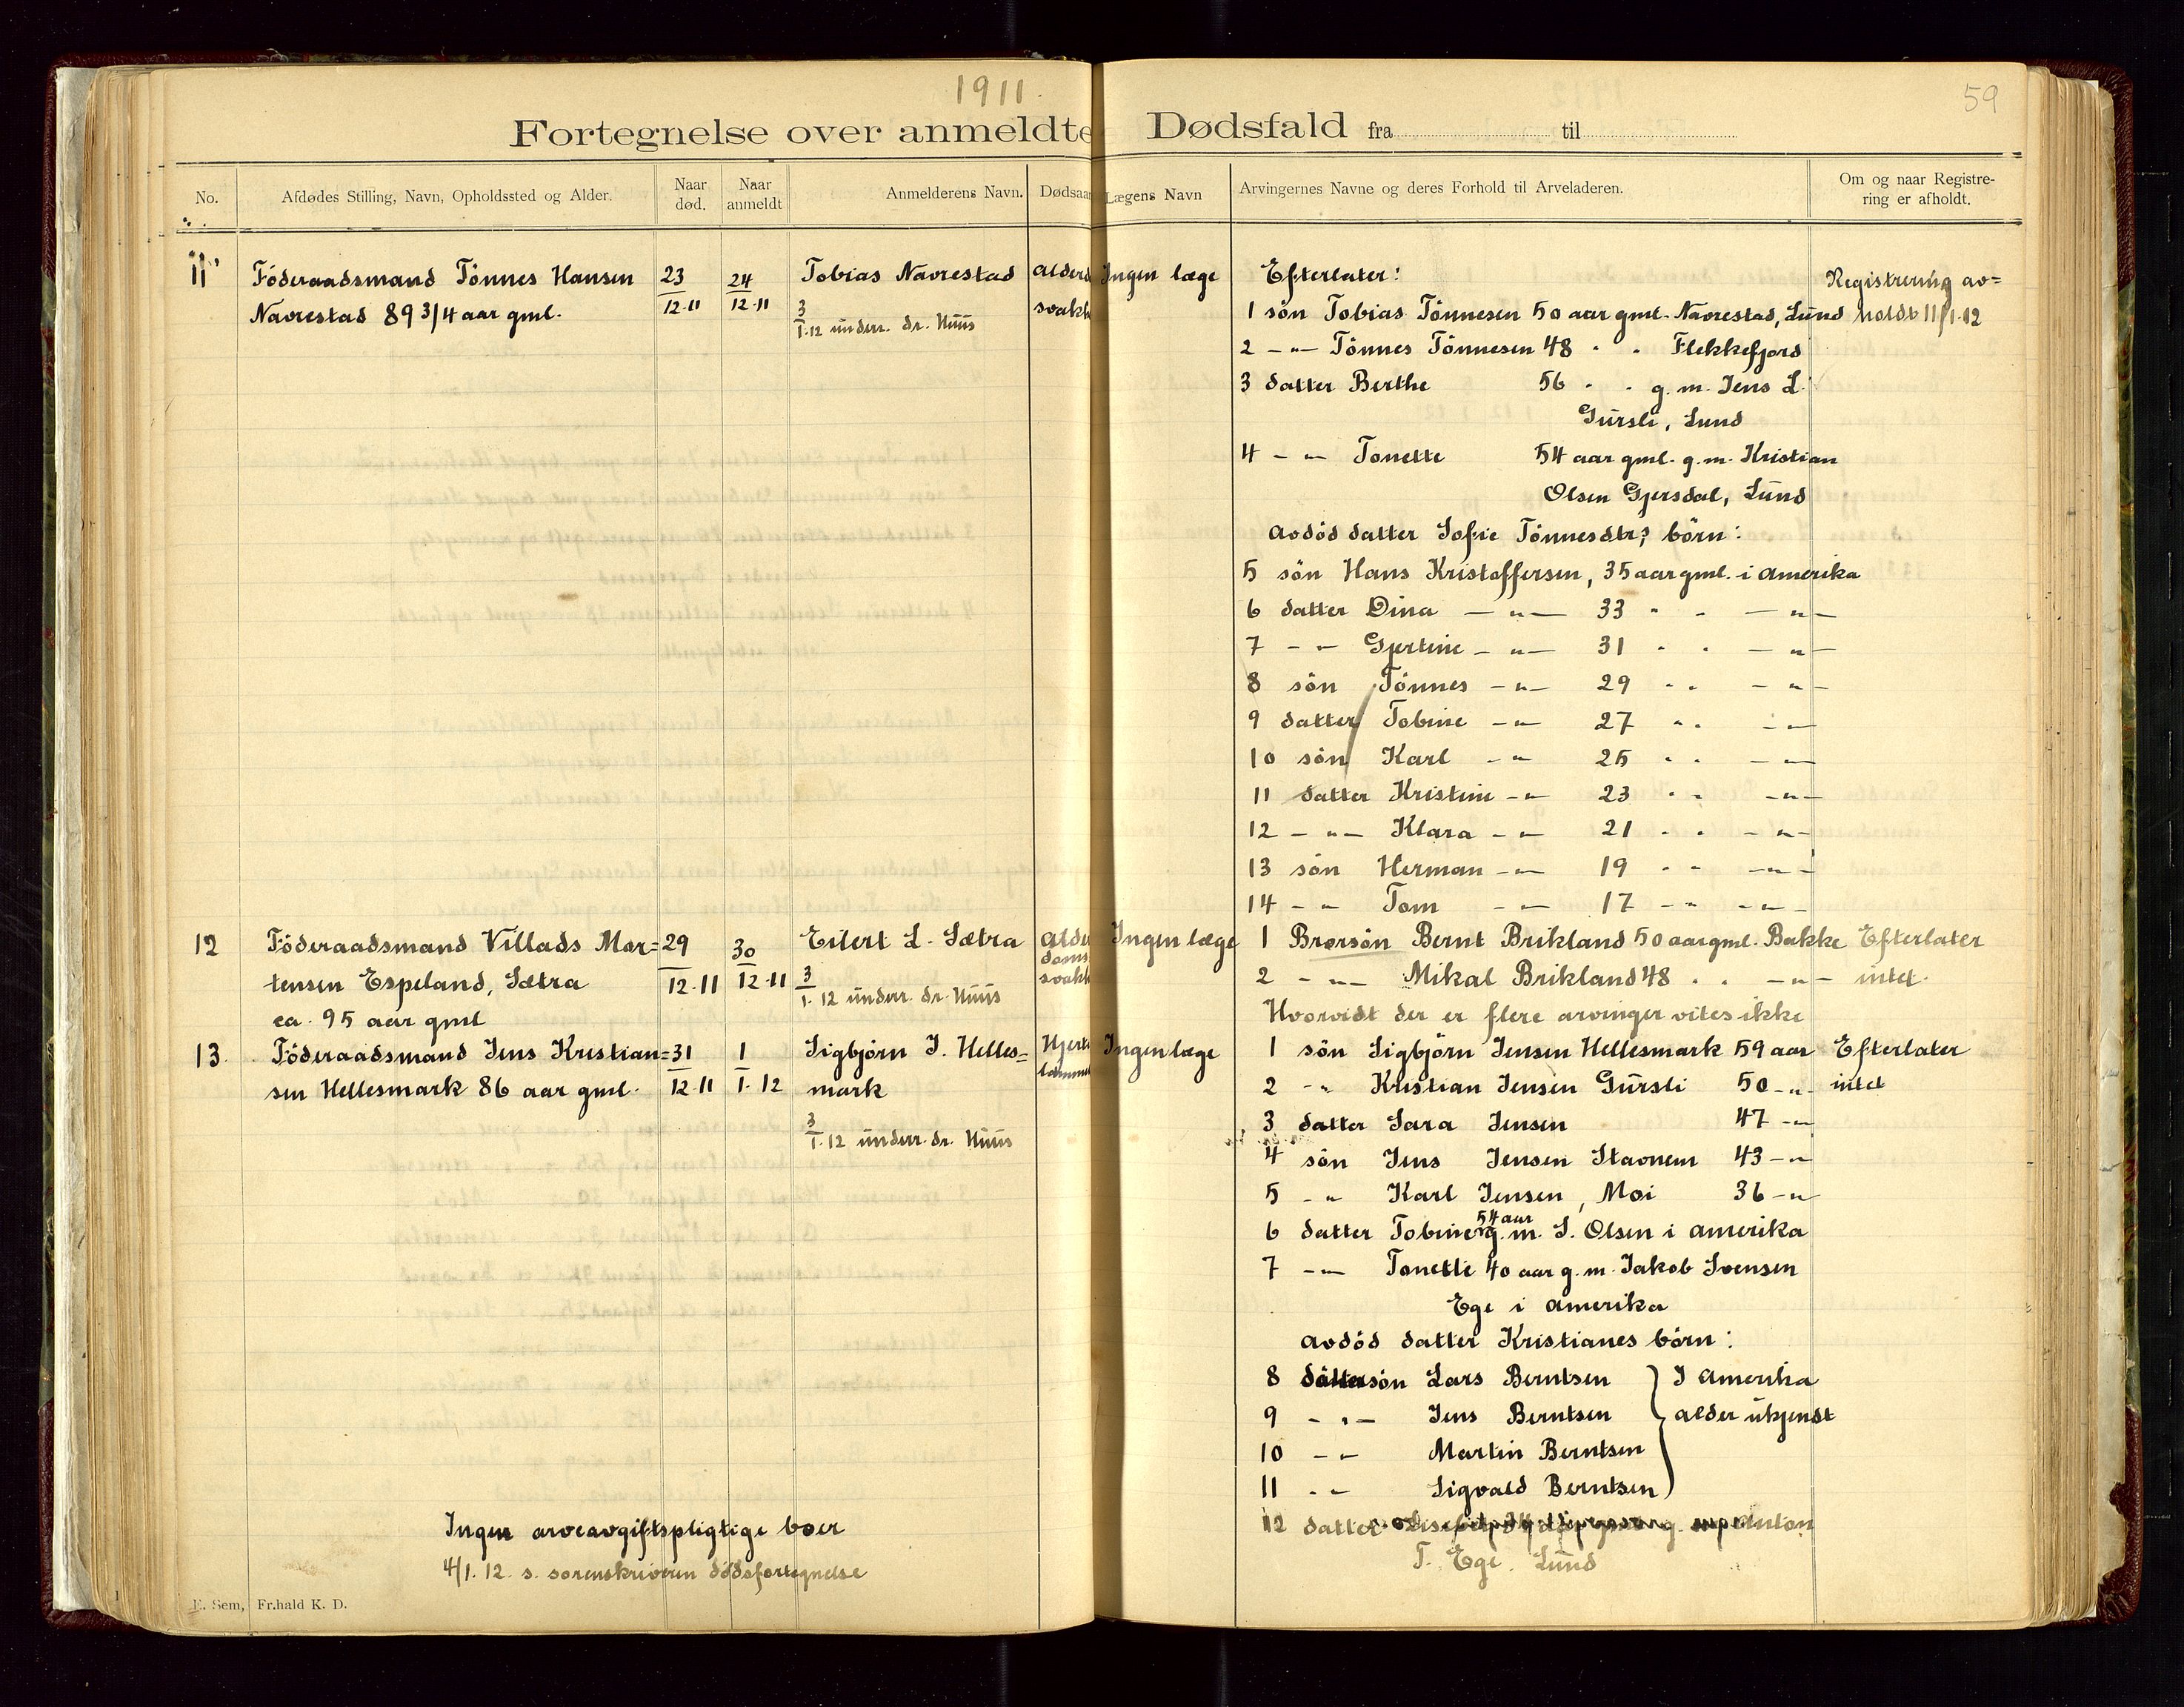 1911.
59
Fortegnelse over anmeldte Dødsfald fra til
No. Afdødes Stilling, Navn, Opholdssted og Alder. Naar død. Naar anmeldt Anmelderens Navn. Dødsaar Lægens Navn Arvingernes Navne og deres Forhold til Arveladeren. Om og naar Registrering er afholdt.
11 Föderaadsmand Tönnes Hansen 23/12-11 24/12-11 Tobias Navrestad alderd Ingen læge Efterlater: Registrering av=
Navrestad 89 3/4 aar gml. 3/1.12 underr. dr. Huus svakh 1 sön Tobias Tönnesen 50 aar gml. Navrestad, Lund holdt 11/1.12
2 -"- Tönnes Tönnesen 48 " " Flekkefjord
3 datter Berthe 56 " " g. m. Jens L.
Gursli, Lund
4 -"- Tonette 54 aar gml. g. m. Kristian
Olsen Gjersdal, Lund
avdöd datter Sofie Tönnesdtrs börn:
5 sön Hans Kristoffersen, 35 aar gml. i Amerika
6 datter Dina -"- 33 " " -"-
7 -"- Gjertine -"- 31 " " -"-
8 sön Tönnes -"- 29 " " -"-
9 datter Tobine -"- 27 " " -"-
10 sön Karl -"- 25 " " -"-
11 datter Kristine -"- 23 " " -"-
12 -"- Klara -"- 21 " " -"-
13 sön Herman -"- 19 " " -"-
14 -"- Tom -"- 17 -"- -"-
12 Föderaadsmand Villads Mor= 29/12-11 30/12-11 Eilert L. Sætra Alder Ingen læge 1 Brorsön Bernt Brikland 50 aar gml. Bakke Efterlater
tensen Espeland, Sætra 3/1.12 underr. dr. Huus doms svakh 2 -"- Mikal Brikland 48 " " -"- intet.
ca. 95 aar gml Hvorvidt der er flere arvinger vites ikke
13. Föderaadsmand Jens Kristian= 31/12-11 1/1.12 Sigbjörn J. Helles= Hjerte Ingen læge 1 sön Sigbjörn Jensen Hellesmark 59 aar Efterlater
sen Hellesmark 86 aar gml. mark lamme 2 -"- Kristian Jensen Gursli 50 -"- intet
3/1.12 underr. dr. Huus 3 datter Sara Jensen 47 -"-
4 sön Jens Jensen Stavnem 43 -"-
5 -"- Karl Jensen, Moi 36 -"-
6 datter Tobine 54 aar g. m. S. Olsen i Amerika
7 -"- Tonette 40 aar g. m. Jakob Svensen
Ege i Amerika
avdöd datter Kristianes börn:
8 dattersön Lars Berntsen } I Amerika
9 -"- Jens Berntsen alder ukjendt
10 -"- Martin Berntsen
11 -"- Sigvald Berntsen
Ingen arveavgiftspligtige boer 12 datter Anton
4/1. 12. s. sorenskriveren dödsfortegnelse T. Ege. Lund
E. Sem, Fr.hald K. D.